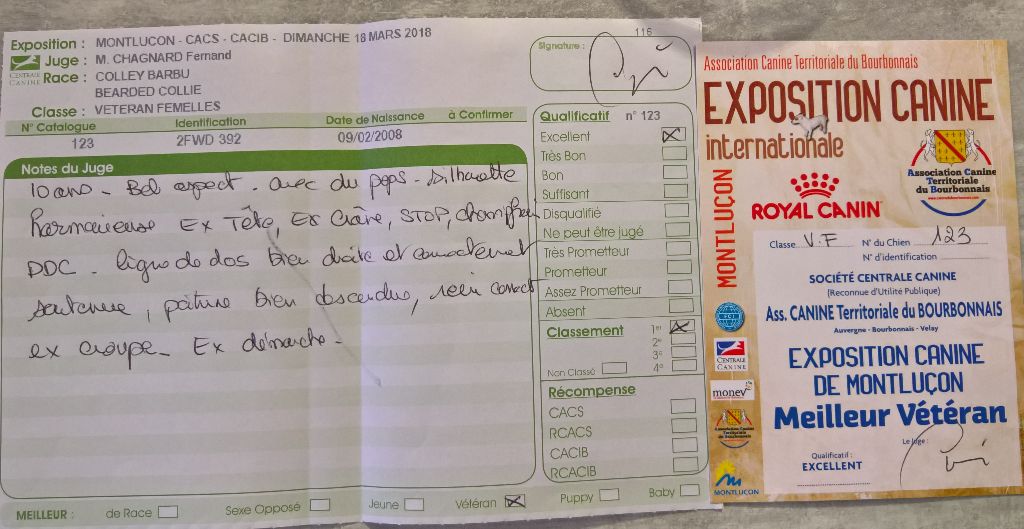 Exposition : MONTLUCON - CACS - CACIB - DIMANCHE 18 MARS 2018
CENTRALE CANINE
Juge : M. CHAGNARD Fernand
Race : COLLEY BARBU
BEARDED COLLIE
Classe : VETERAN FEMELLES
N° Catalogue Identification Date de Naissance à Confirmer
123 2FWD 392 09/02/2008
Notes du Juge
10 ans - Bel aspect - avec du peps - Silhouette
Harmonieuse Ex Tête, Ex Crâne, STOP, chanfrein
DDC - ligne de dos bien droite et correctement
soutenue, poitrine bien descendue, rein correct
ex croupe - Ex démarche -
116
Signature :
Qualificatif n° 123
Excellent
Très Bon
Bon
Suffisant
Disqualifié
Ne peut être jugé
Très Prometteur
Prometteur
Assez Prometteur
Absent
Classement 1er
2e
3e
Non Classé 4e
Récompense
CACS
RCACS
CACIB
RCACIB
MEILLEUR : de Race Sexe Opposé Jeune Vétéran Puppy Baby
Association Canine Territoriale du Bourbonnais
EXPOSITION CANINE
internationale
Association Canine
Territoriale
du Bourbonnais
MONTLUÇON
ROYAL CANIN
Classe V.F N° du Chien 123
N° d'identification
SOCIÉTÉ CENTRALE CANINE
(Reconnue d'Utilité Publique)
Ass. CANINE Territoriale du BOURBONNAIS
Auvergne - Bourbonnais - Velay
EXPOSITION CANINE
DE MONTLUÇON
Meilleur Vétéran
Le Juge :
Qualificatif :
EXCELLENT
FCI
CENTRALE
CANINE
Association Canine
Territoriale
du Bourbonnais
MONTLUÇON